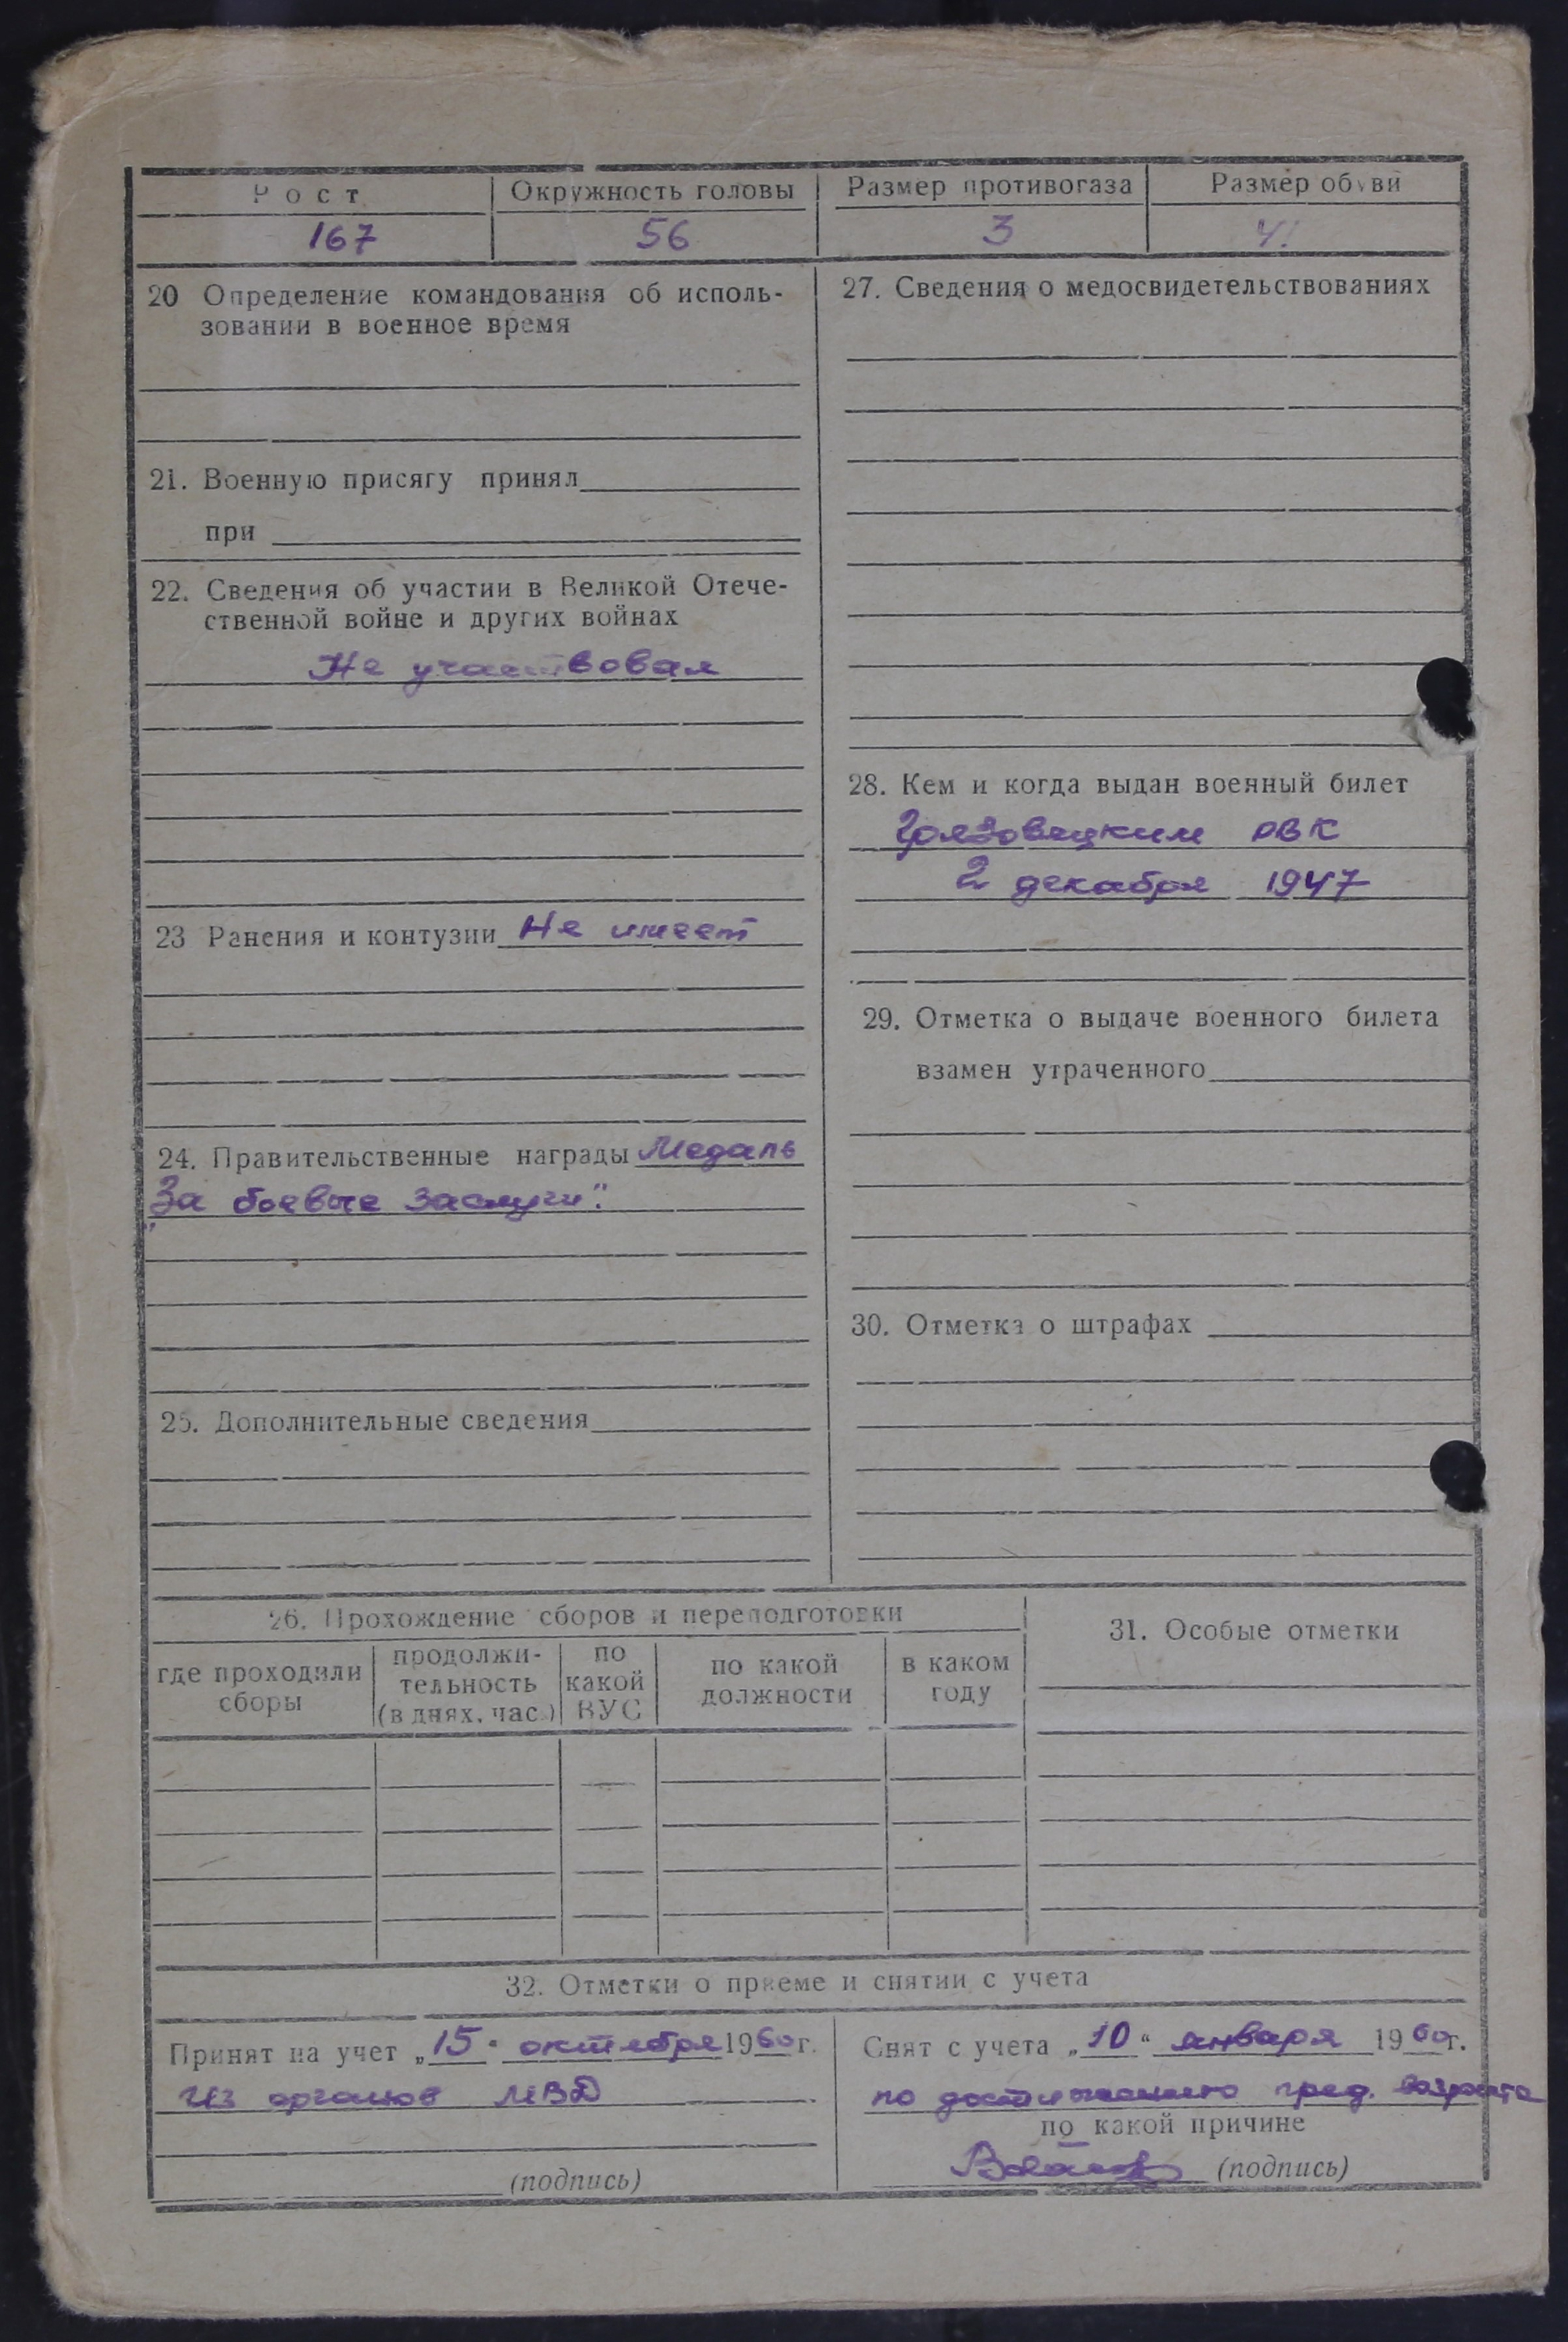 Рост Окружность головы Размер противогаза Размер обуви
167 56 3 41
20 Определение командования об исполь-
зовании в военное время
21. Военную присягу принял
при
22. Сведения об участии в Великой Отече-
ственной войне и других войнах
Не участвовал
23 Ранения и контузии Не имеет
24. Правительственные награды Медаль
„За боевые заслуги“.
25. Дополнительные сведения
27. Сведения о медосвидетельствованиях
28. Кем и когда выдан военный билет
Грязовецким РВК
2 декабря 1947
29. Отметка о выдаче военного билета
взамен утраченного
30. Отметка о штрафах
26. Прохождение сборов и переподготовки
где проходили
сборы
продолжи-
тельность
(в днях, час.)
по
какой
ВУС
по какой
должности
в каком
году
31. Особые отметки
32. Отметки о приеме и снятии с учета
Принят на учет „15“ октября 1960 г.
из органов МВД
(подпись)
Снят с учета „10“ января 1960 г.
по достижению пред. возраста
по какой причине
(подпись)